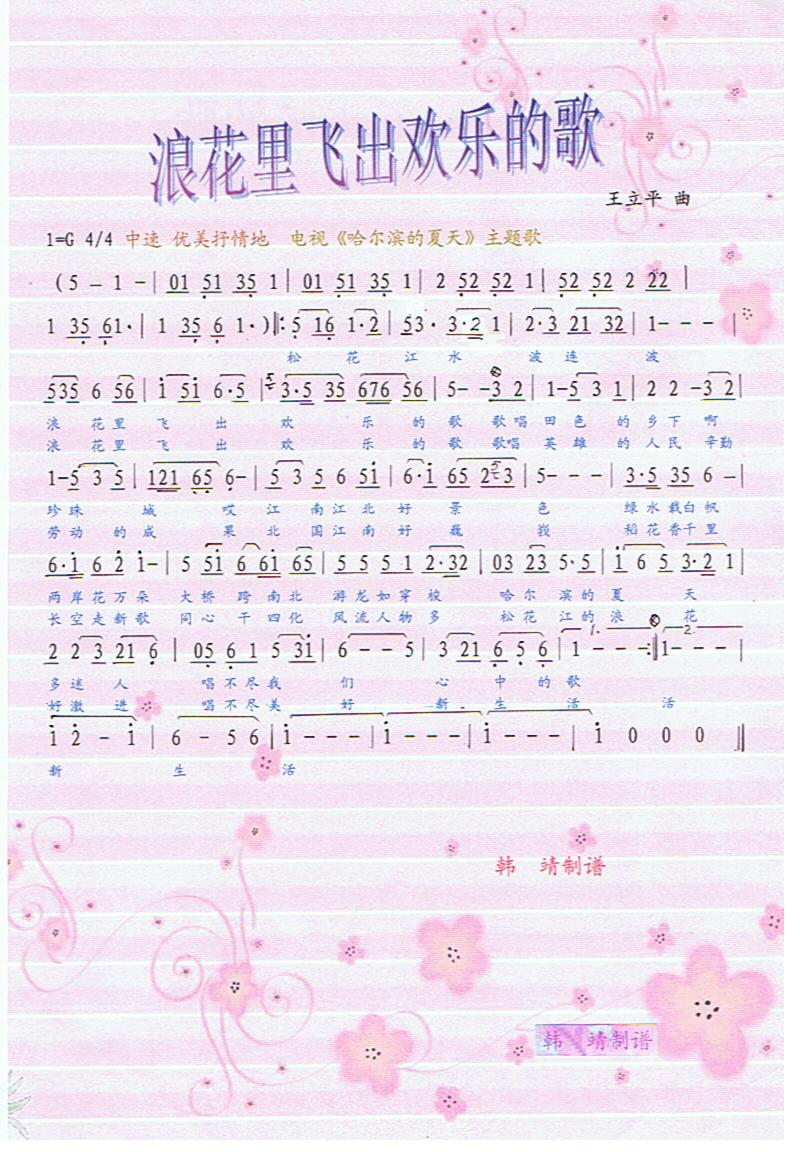 浪花里飞出欢乐的歌
王立平 曲
1=G 4/4 中速 优美抒情地 电视《哈尔滨的夏天》主题歌
(5 - 1 - | 01 51 35 1 | 01 51 35 1 | 2 52 52 1 | 52 52 2 22 |
1 35 61· | 1 35 6 1· )‖: 5 16 1·2 | 53· 3·2 1 | 2·3 21 32 | 1- - - |
松 花 江 水 波 连 波
535 6 56 | i 5i 6·5 | 3·5 35 676 56 | 5- -3 2 | 1-5 3 1 | 2 2 -3 2 |
浪 花 里 飞 出 欢 乐 的 歌 歌唱 田 色 的 乡 下 啊
浪 花 里 飞 出 欢 乐 的 歌 歌唱 英 雄 的 人 民 辛勤
1-5 3 5 | 121 65 6- | 5 3 5 6 5i | 6·i 65 253 | 5- - - | 3·5 35 6 - |
珍 珠 城 哎 江 南 江 北 好 景 色 绿 水 载白 帆
劳 动 的 成 果 北 国 江 南 好 巍 峩 稻 花 香千 里
6·i 62 i- | 5 5i 6 6i 65 | 5 5 5 1 2·32 | 03 23 5·5 | i 6 5 3·2 1 |
两 岸 花 万 朵 大 桥 跨 南北 游 龙 如 穿 梭 哈 尔 滨 的 夏 天
长 空 走 新 歌 同 心 干 四化 风 流 人 物 多 松 花 江 的 浪 花
2 2 3 21 6 | 05 6 1 5 3i | 6 - - 5 | 3 21 6 5 6 | 1 - - - :‖ 1- - - |
1. 2.
多 迷 人 唱 不 尽 我 们 心 中 的 歌
好 激 进 唱 不 尽 美 好 新 生 活 活
i 2 - i | 6 - 5 6 | i - - - | i - - - | i - - - | i 0 0 0 ‖
新 生 活
韩 靖制谱
韩 靖制谱